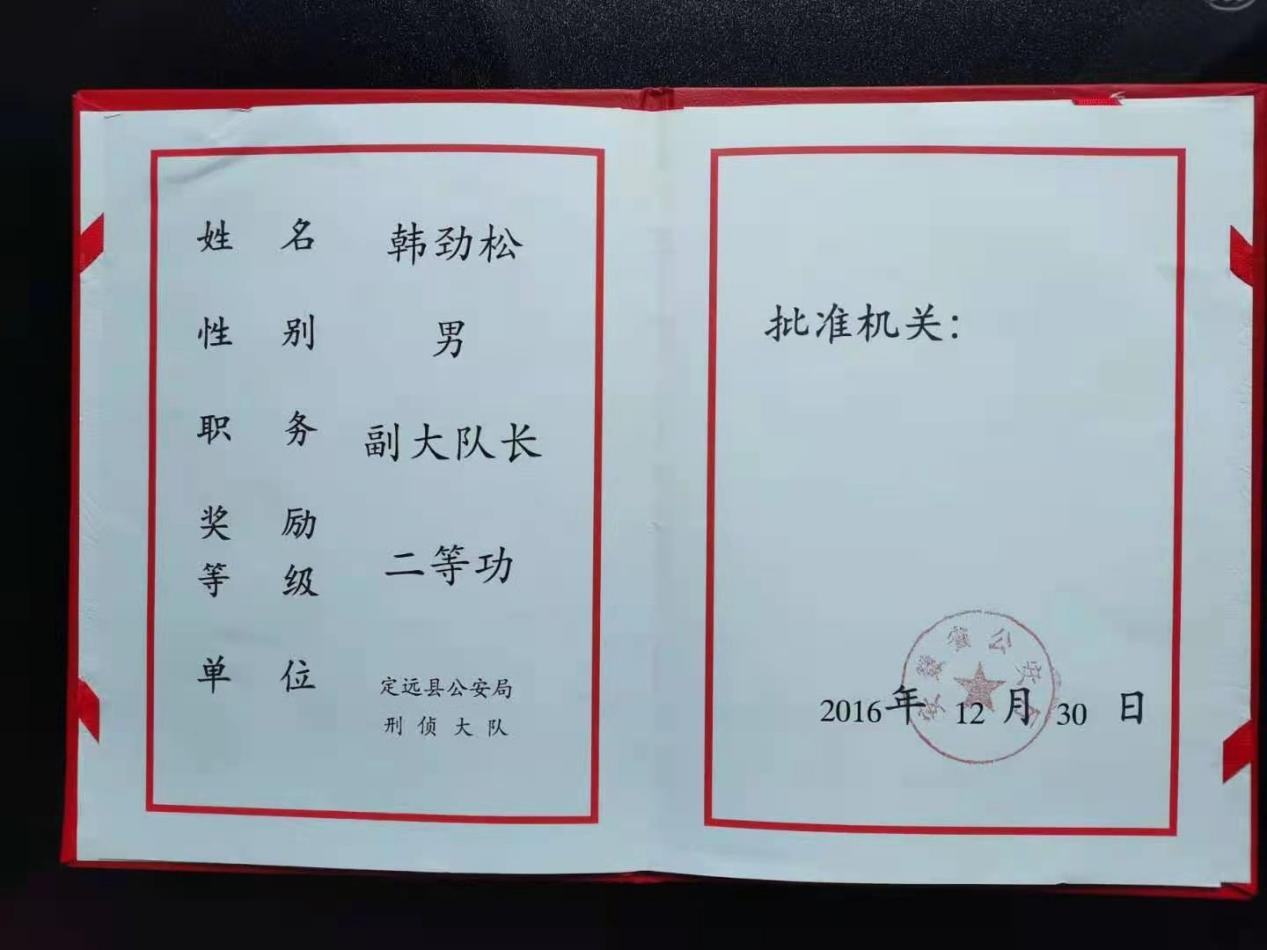 姓 名 韩劲松
性 别 男
职 务 副大队长
奖 励
等 级 二等功
单 位 定远县公安局
刑侦大队
批准机关：
安徽省公安厅
2016年 12月 30 日